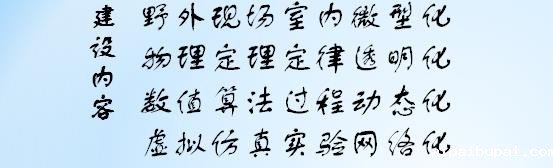 建设内容
野外现场室内微型化
物理定理定律透明化
数值算法过程动态化
虚拟仿真实验网络化